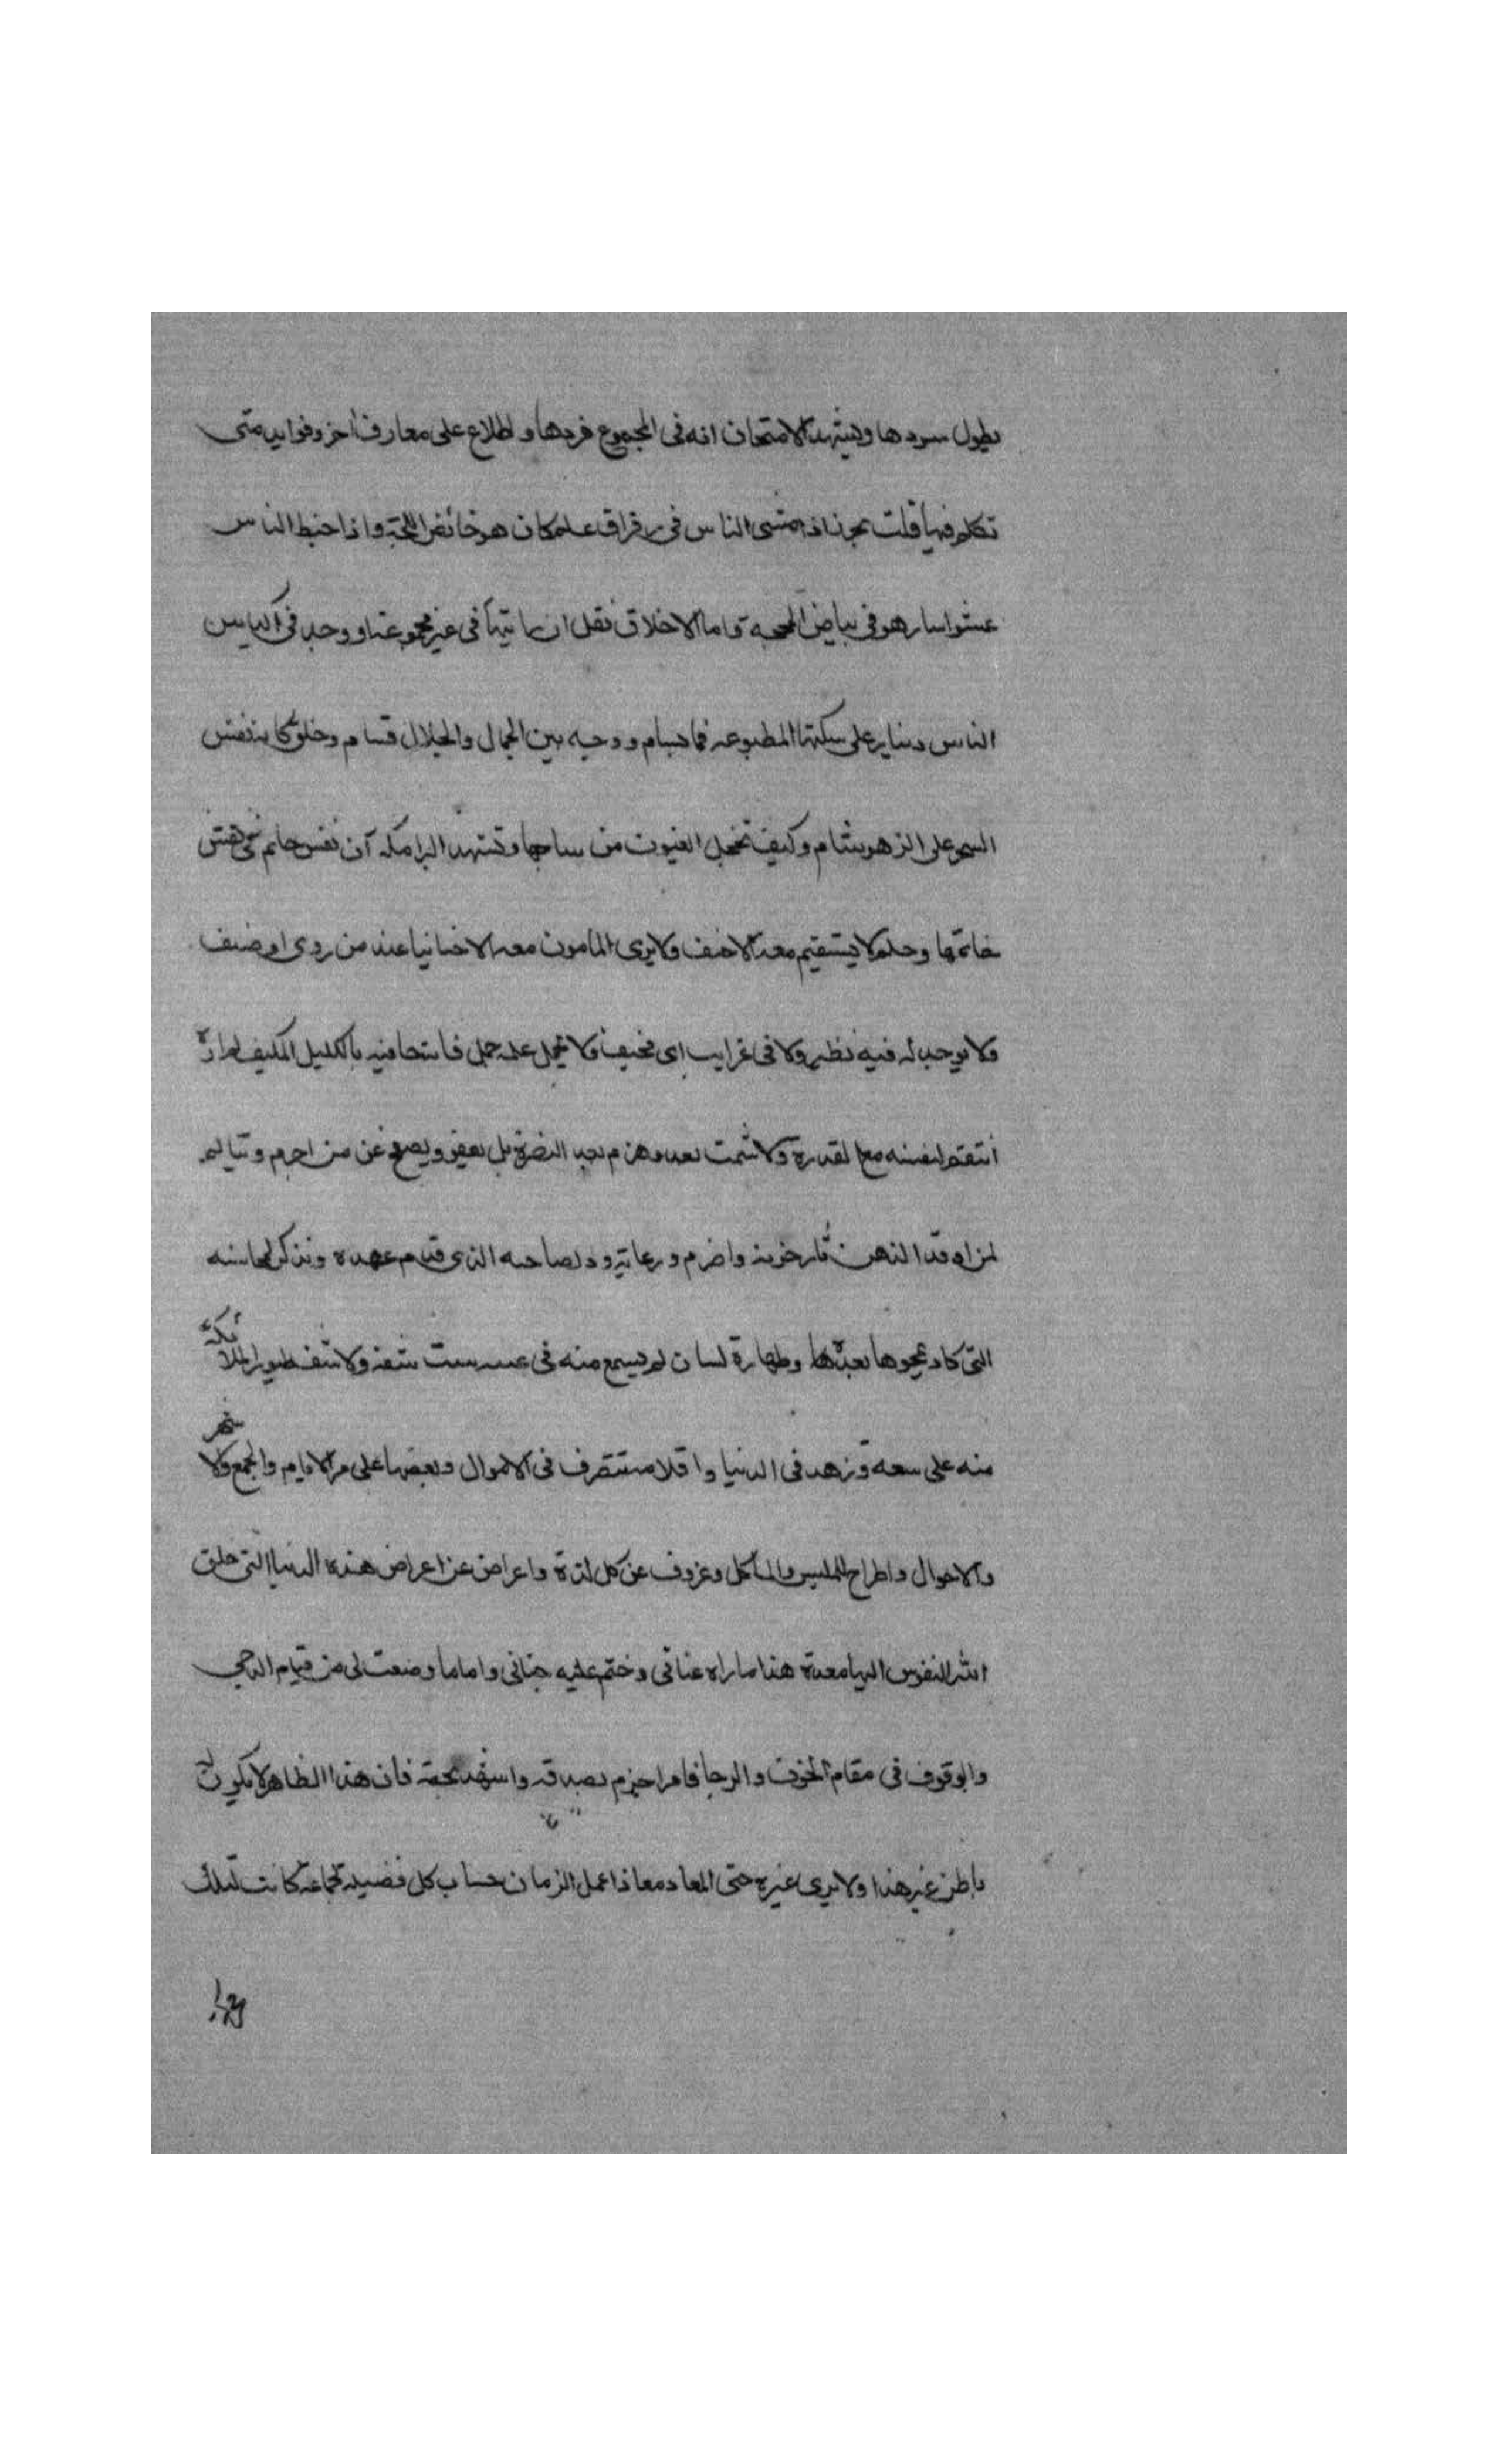 يطول سردها ويشهد الامتحان انه في المجموع فردها واطلاع على معارف اخر وفوايد متى
تكلم فيها قلت بحر اذا مشى الناس في رقراق علم كان هو خائض اللجة واذا خبط الناس
عشوا سار هو في بياض المحجة واما الاخلاق فقل ان رايتها في غير مجموعة او وجد في اكياس
الناس دينار على سكتها المطبوعة فم بسام ووجه بين الجمال والجلال قسام وخلق كانه نفس
السحر على الزهر نسام وكيف تخجل الغيوث من ساحها وتشهد البرامكة ان نفس حاتم في نقش
خاتمها وحلم لا يستقيم معه الاحنف ولا يرى المامون معه الا خائنا عند من روى او صنف
ولا يوجد له فيه نظير ولا في غرايب ابي مخنف ولا يحمل عليه حمل فانه جا فيه بالكليل المكيف لم اره
انتقم لنفسه مع القدرة ولا شمت بعدو هزم بعد النصرة بل يعفو ويصفح عن من اجرم ويتالم
لمن اوقد الدهر نار حربه واضرم ورعاية ود لصاحبه الذي قدم عهده وتذكر لمحاسنه
التي كاد يمحوها بعده وطهارة لسان لم يسمع منه في شفة ولا تسف طيور الملائكة
منه على سعة وزهد في الدنيا واقلام تتصرف في الاموال وبعضها على مر الايام والجمع والاشهر
والاحوال واطراح للملبس والماكل وعزوف عن كل لذة واعراض عن اعراض هذه الدنيا التي خلق
الله النفوس اليها معدة هذا ما راه عياني وختم عليه جناني واما ما وصفت لي من قيام الدجى
والوقوف في مقام الخوف والرجا فامر اجزم بصدقه واشهد بحقه فان هذا الظاهر لا يكون له
باطن غير هذا ولا يرى غيره حتى المعاد معاذا عمل الزمان حساب كل فضيلة بجماعة كانت لتلك